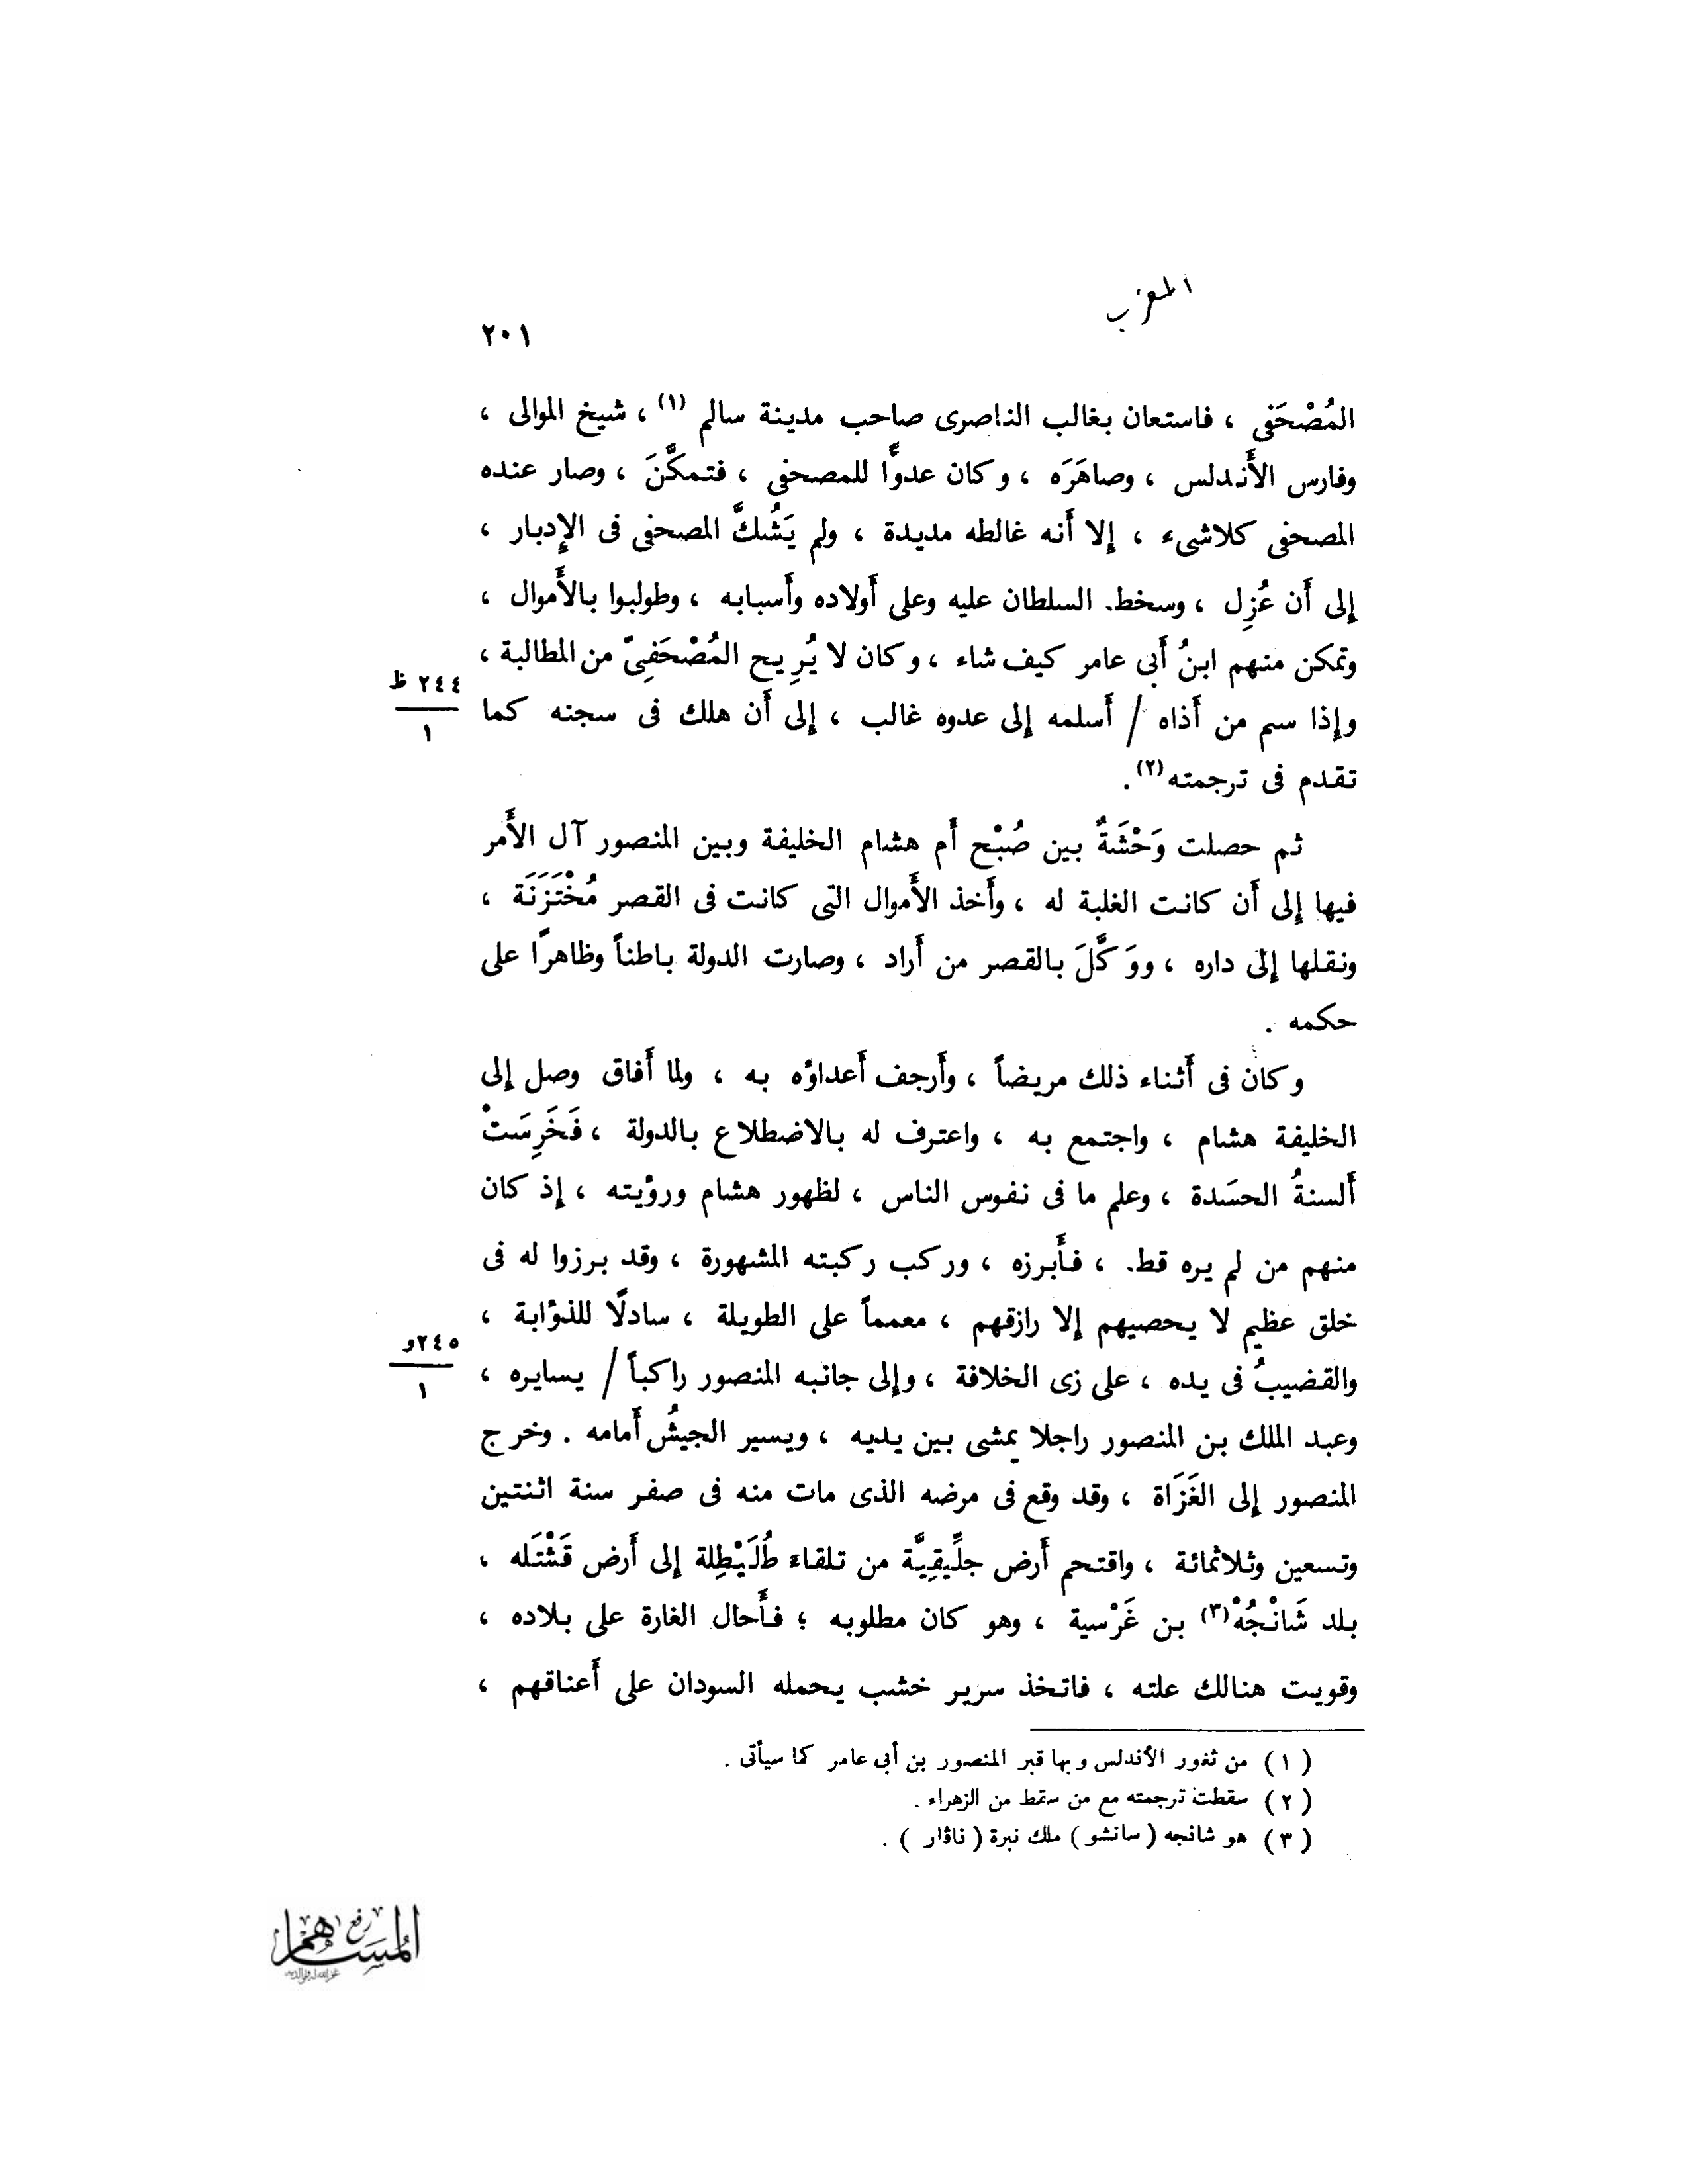 المغرب
٢٠١
المُصْحَفى ، فاستعان بغالب الناصرى صاحب مدينة سالم (١) ، شيخ الموالى ،
وفارس الأَندلس ، وصاهَرَه ، وكان عدوًّا للمصحفى ، فتمكَّنَ ، وصار عنده
المصحفى كلاشىء ، إلا أَنه غالطه مديدة ، ولم يَشُكَّ المصحفى فى الإِدبار ،
إلى أَن عُزِل ، وسخط. السلطان عليه وعلى أَولاده وأَسبابه ، وطولبوا بالأَموال ،
وتمكن منهم ابنُ أَبى عامر كيف شاء ، وكان لا يُرِيح المُصْحَفِىّ من المطالبة ،
٢٤٤ ظ
١
وإذا سم من أَذاه / أَسلمه إلى عدوه غالب ، إلى أَن هلك فى سجنه كما
تقدم فى ترجمته (٢) .
ثم حصلت وَحْشَةٌ بين صُبْح أَم هشام الخليفة وبين المنصور آل الأَمر
فيها إلى أَن كانت الغلبة له ، وأَخذ الأَموال التى كانت فى القصر مُخْتَزَنَة ،
ونقلها إلى داره ، ووَكَّلَ بالقصر من أَراد ، وصارت الدولة باطناً وظاهرًا على
حكمه .
وكان فى أَثناء ذلك مريضاً ، وأَرجف أَعداؤه به ، ولما أَفاق وصل إلى
الخليفة هشام ، واجتمع به ، واعترف له بالاضطلاع بالدولة ، فَخَرِسَتْ
أَلسنةُ الحسَدة ، وعلم ما فى نفوس الناس ، لظهور هشام ورؤيته ، إذ كان
منهم من لم يره قط. ، فأَبرزه ، وركب ركبته المشهورة ، وقد برزوا له فى
خلق عظيم لا يحصيهم إلا رازقهم ، معمماً على الطويلة ، سادلًا للذؤابة ،
٢٤٥و
١
والقضيبُ فى يده ، على زى الخلافة ، وإلى جانبه المنصور راكباً / يسايره ،
وعبد الملك بن المنصور راجلا يمشى بين يديه ، ويسير الجيشُ أَمامه . وخرج
المنصور إلى الغَزَاة ، وقد وقع فى مرضه الذى مات منه فى صفر سنة اثنتين
وتسعين وثلاثمائة ، واقتحم أَرض جلِّيقِيَّة من تلقاءَ طُلَيْطِلة إلى أَرض قَشْتَله ،
بلد شَانْجُهْ (٣) بن غَرْسية ، وهو كان مطلوبه ؛ فأَحال الغارة على بلاده ،
وقويت هنالك علته ، فاتخذ سرير خشب يحمله السودان على أَعناقهم ،
( ١ ) من ثغور الأندلس وبها قبر المنصور بن أبى عامر كما سيأتى .
( ٢ ) سقطت ترجمته مع من سقط من الزهراء .
( ٣ ) هو شانجه ( سانشو ) ملك نبرة ( ناڤار ) .
رفع
المساهم